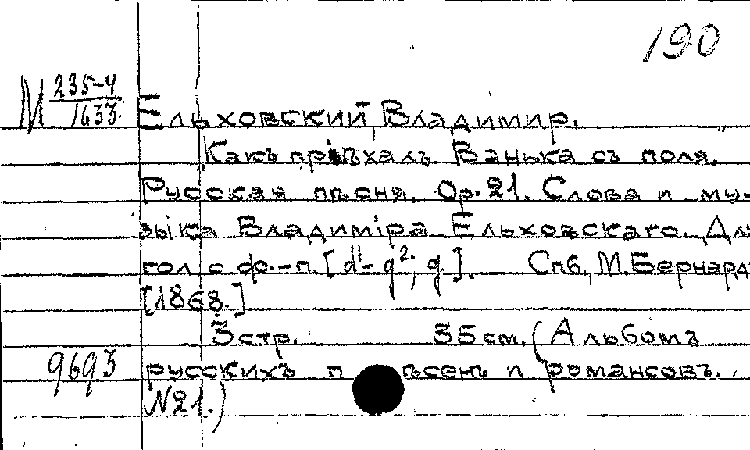 190
М 235-4
1633
Ельховский Владимир.
Какъ пріѣхалъ Ванька съ поля.
Русская пѣсня. Ор. 21. Слова и му-
зыка Владиміра Ельховскаго. Для
гол. с фр.-п. [d¹-g²; g.]. Спб, М. Бернард
[1868.]
3 стр. 35 см. (Альбомъ
9693 русскихъ п ѣсенъ и романсовъ.
N21.)